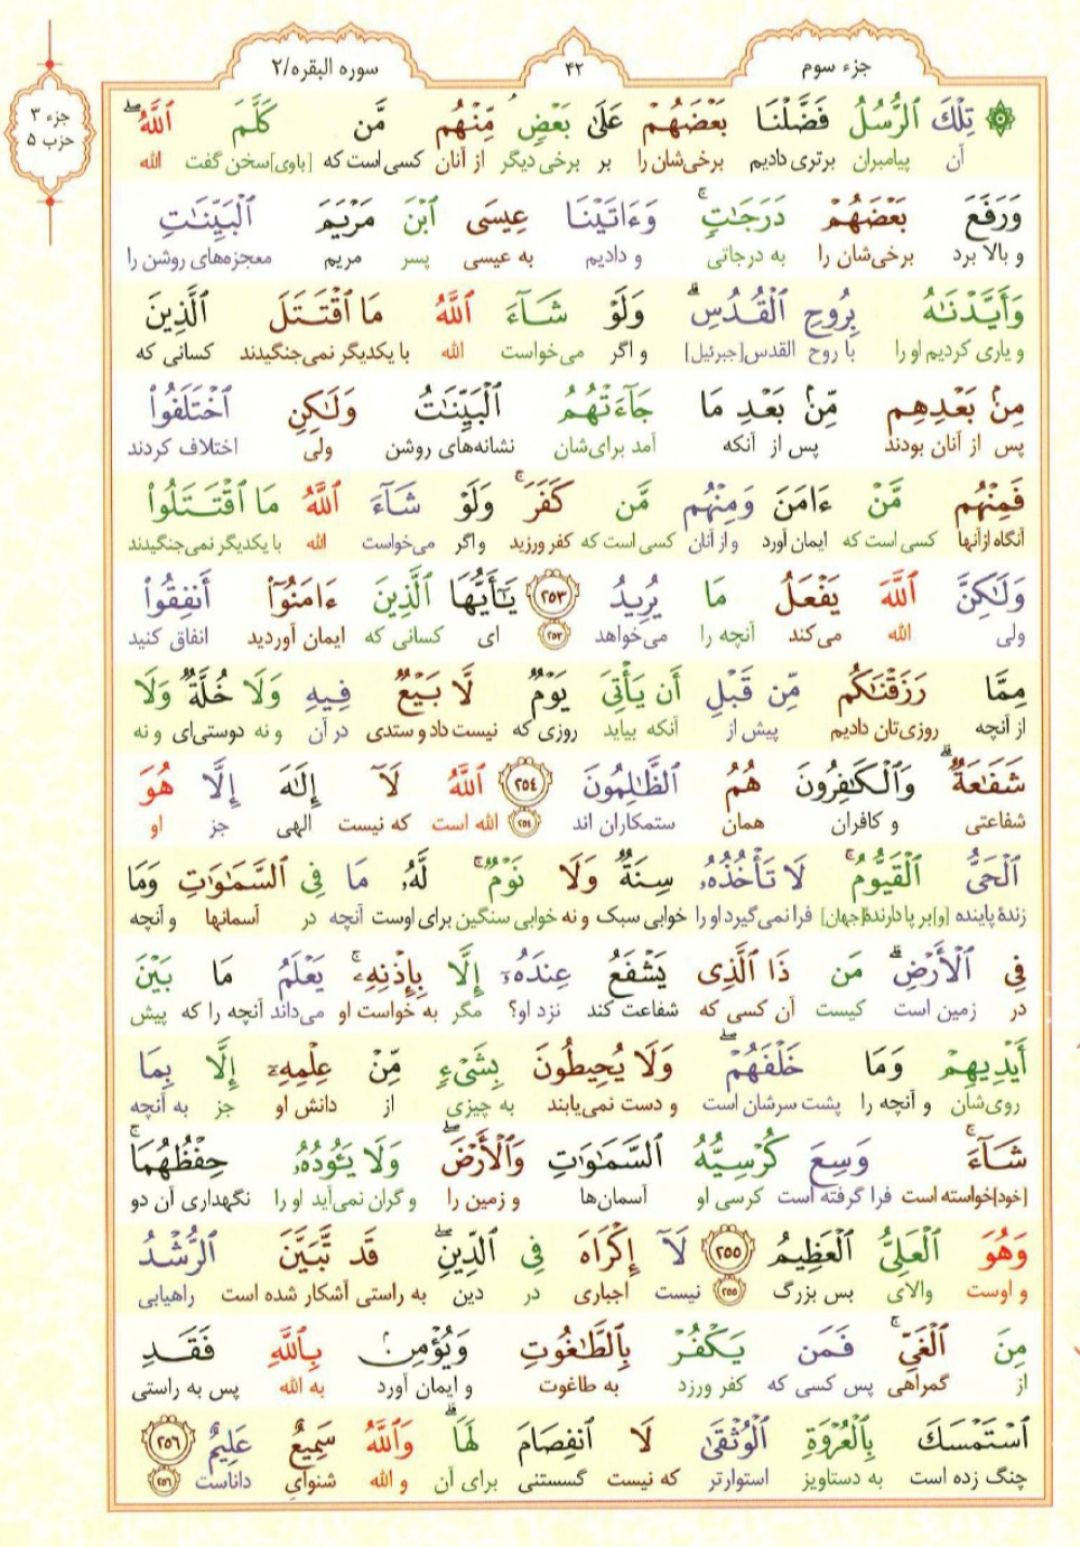 جزء سوم
۴۲
سوره البقره/۲
جزء ۳
حزب ۵
تِلْكَ ٱلرُّسُلُ فَضَّلْنَا بَعْضَهُمْ عَلَىٰ بَعْضٍ مِّنْهُم مَّن كَلَّمَ ٱللَّهُ ۖ
آن پیامبران برتری دادیم برخی‌شان را بر برخی دیگر از آنان کسی است که [باوی]سخن گفت الله
وَرَفَعَ بَعْضَهُمْ دَرَجَـٰتٍ ۚ وَءَاتَيْنَا عِيسَى ٱبْنَ مَرْيَمَ ٱلْبَيِّنَـٰتِ
و بالا برد برخی‌شان را به درجاتی و دادیم به عیسی پسر مریم معجزه‌های روشن را
وَأَيَّدْنَـٰهُ بِرُوحِ ٱلْقُدُسِ ۗ وَلَوْ شَآءَ ٱللَّهُ مَا ٱقْتَتَلَ ٱلَّذِينَ
و یاری کردیم او را با روح القدس[جبرئیل] و اگر می‌خواست الله با یکدیگر نمی‌جنگیدند کسانی که
مِنۢ بَعْدِهِم مِّنۢ بَعْدِ مَا جَآءَتْهُمُ ٱلْبَيِّنَـٰتُ وَلَـٰكِنِ ٱخْتَلَفُوا۟
پس از آنان بودند پس از آنکه آمد برای‌شان نشانه‌های روشن ولی اختلاف کردند
فَمِنْهُم مَّنْ ءَامَنَ وَمِنْهُم مَّن كَفَرَ ۚ وَلَوْ شَآءَ ٱللَّهُ مَا ٱقْتَتَلُوا۟
آنگاه ازآنها کسی است که ایمان آورد و از آنان کسی است که کفر ورزید و اگر می‌خواست الله با یکدیگر نمی‌جنگیدند
وَلَـٰكِنَّ ٱللَّهَ يَفْعَلُ مَا يُرِيدُ ٢٥٣ يَـٰٓأَيُّهَا ٱلَّذِينَ ءَامَنُوٓا۟ أَنفِقُوا۟
ولی الله می‌کند آنچه را می‌خواهد ۲۵۳ ای کسانی که ایمان آوردید انفاق کنید
مِمَّا رَزَقْنَـٰكُم مِّن قَبْلِ أَن يَأْتِىَ يَوْمٌ لَّا بَيْعٌ فِيهِ وَلَا خُلَّةٌ وَلَا
از آنچه روزی‌تان دادیم پیش از آنکه بیاید روزی که نیست داد و ستدی در آن و نه دوستی‌ای و نه
شَفَـٰعَةٌ ۗ وَٱلْكَـٰفِرُونَ هُمُ ٱلظَّـٰلِمُونَ ٢٥٤ ٱللَّهُ لَآ إِلَـٰهَ إِلَّا هُوَ
شفاعتی و کافران همان ستمکاران اند ۲۵۴ الله است که نیست الهی جز او
ٱلْحَىُّ ٱلْقَيُّومُ ۚ لَا تَأْخُذُهُۥ سِنَةٌ وَلَا نَوْمٌ ۚ لَّهُۥ مَا فِى ٱلسَّمَـٰوَٰتِ وَمَا
زندهٔ پاینده [و]بر پا دارندهٔ[جهان] فرا نمی‌گیرد او را خوابی سبک و نه خوابی سنگین برای اوست آنچه در آسمانها و آنچه
فِى ٱلْأَرْضِ ۗ مَن ذَا ٱلَّذِى يَشْفَعُ عِندَهُۥٓ إِلَّا بِإِذْنِهِۦ ۚ يَعْلَمُ مَا بَيْنَ
در زمین است کیست آن کسی که شفاعت کند نزد او؟ مگر به خواست او می‌داند آنچه را که پیش
أَيْدِيهِمْ وَمَا خَلْفَهُمْ ۖ وَلَا يُحِيطُونَ بِشَىْءٍ مِّنْ عِلْمِهِۦٓ إِلَّا بِمَا
روی‌شان و آنچه را پشت سرشان است و دست نمی‌یابند به چیزی از دانش او جز به آنچه
شَآءَ ۚ وَسِعَ كُرْسِيُّهُ ٱلسَّمَـٰوَٰتِ وَٱلْأَرْضَ ۖ وَلَا يَـُٔودُهُۥ حِفْظُهُمَا ۚ
[خود]خواسته است فرا گرفته است کرسی او آسمان‌ها و زمین را و گران نمی‌آید او را نگهداری آن دو
وَهُوَ ٱلْعَلِىُّ ٱلْعَظِيمُ ٢٥٥ لَآ إِكْرَاهَ فِى ٱلدِّينِ ۖ قَد تَّبَيَّنَ ٱلرُّشْدُ
و اوست والای بس بزرگ ۲۵۵ نیست اجباری در دین به راستی آشکار شده است راهیابی
مِنَ ٱلْغَىِّ ۚ فَمَن يَكْفُرْ بِٱلطَّـٰغُوتِ وَيُؤْمِنۢ بِٱللَّهِ فَقَدِ
از گمراهی پس کسی که کفر ورزد به طاغوت و ایمان آورد به الله پس به راستی
ٱسْتَمْسَكَ بِٱلْعُرْوَةِ ٱلْوُثْقَىٰ لَا ٱنفِصَامَ لَهَا ۗ وَٱللَّهُ سَمِيعٌ عَلِيمٌ ٢٥٦
چنگ زده است به دستاویز استوارتر که نیست گسستنی برای آن و الله شنوای داناست ۲۵۶